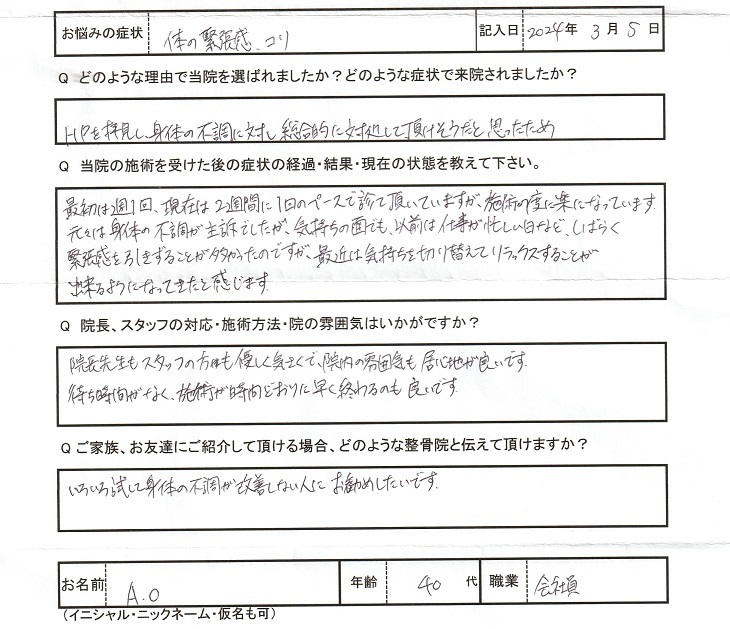 お悩みの症状 体の緊張感、コリ 記入日 2024年 3月 5日
Q どのような理由で当院を選ばれましたか？どのような症状で来院されましたか？
HPを拝見し、身体の不調に対し総合的に対処して頂けそうだと思ったため
Q 当院の施術を受けた後の症状の経過・結果・現在の状態を教えて下さい。
最初は週1回、現在は2週間に1回のペースで診て頂いていますが、施術の度に楽になっています。
元々は身体の不調が主訴でしたが、気持ちの面でも、以前は仕事が忙しい日など、しばらく
緊張感を引きずることが多かったのですが、最近は気持ちを切り替えてリラックスすることが
出来るようになってきたと感じます。
Q 院長、スタッフの対応・施術方法・院の雰囲気はいかがですか？
院長先生もスタッフの方々も優しく気さくで、院内の雰囲気も居心地が良いです。
待ち時間がなく、施術が時間どおりに早く終わるのも良いです。
Q ご家族、お友達にご紹介して頂ける場合、どのような整骨院と伝えて頂けますか？
いろいろ試して身体の不調が改善しない人にお勧めしたいです。
お名前 A.O 年齢 40 代 職業 会社員
（イニシャル・ニックネーム・仮名も可）